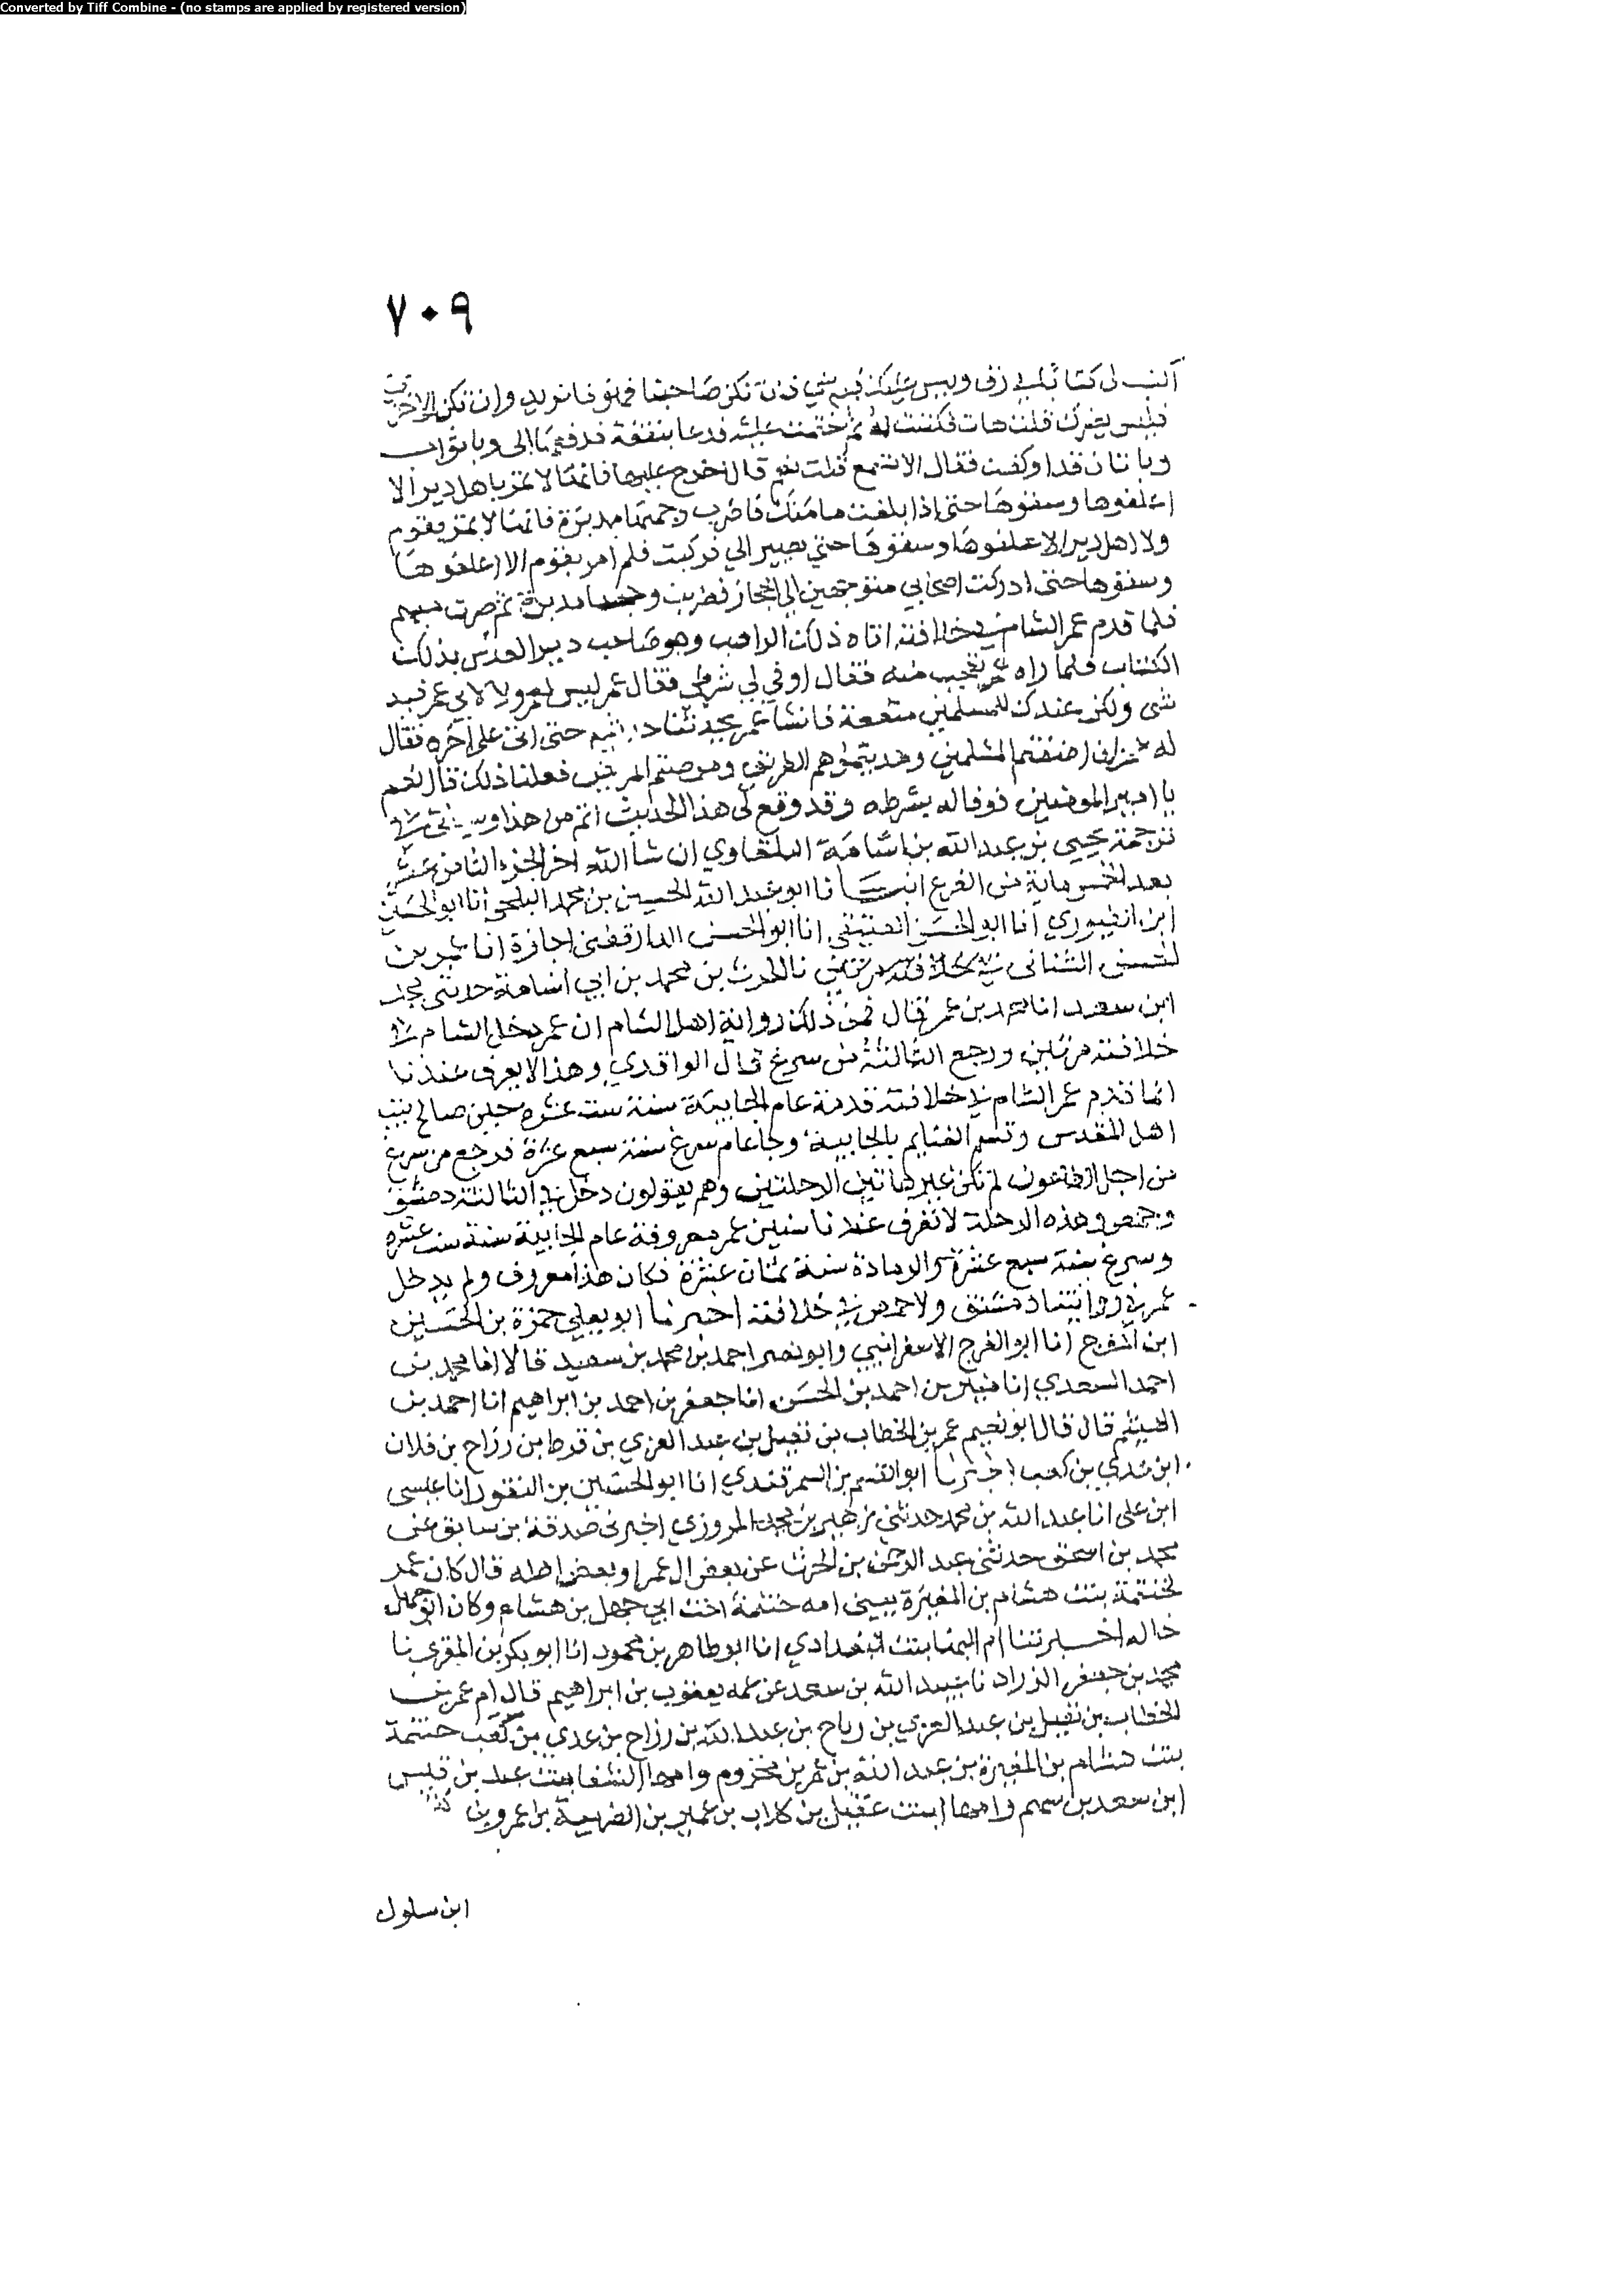 Converted by Tiff Combine - (no stamps are applied by registered version)
٧٠٩
اكتب لي كتابا في رق وليس عليك فيه شي فان تكن صاحبنا فهو ما نريد وان تكن الاخرى
فليس يضرك قلت هات فكتبت له ثم ختمت عليه فدعا بنفقة فدفعها الي وباثواب
وباتان قد اوكفت فقال الا تسمع قلت نعم قال اخرج عليها فانها لا تمر باهل دير الا
اعلفوها وسقوها حتى اذا بلغت مامنك فاضرب وجهها مدبرة فانها لا تمر بقوم
ولا اهل دير الا علفوها وسقوها حتى تصير الي فركبت فلم امر بقوم الا اعلفوها
وسقوها حتى ادركت اصحابي متوجهين الى الحجاز فضربت وجهها مدبرة ثم صرت معهم
فلما قدم عمر الشام في خلافته اتاه ذلك الراهب وهو صاحب دير العدس بذلك
الكتاب فلما راه عمر تعجب منه فقال اوفي لي شرطي فقال عمر ليس لعمر ولا لابي عمر فيه
شي ولكن عندك للمسلمين منفعة فانشا عمر يحدثنا حديثه حتى اتى على اخره فقال
له عمر ان اضفتم المسلمين وهديتموهم الطريق ومرضتم المريض فعلنا ذلك قال نعم
يا امير المومنين فوفا له بشرطه وقد وقع لي هذا الحديث اتم من هذا وسياتي في
ترجمة يحيى بن عبد الله بن اسامة البلقاوي ان شا الله اخر الجزء الثامن عشر
بعد الخمس ماية من الفرع انبانا ابو عبد الله الحسين بن محمد البلخي انا ابو الحسين
ابن الطيوري انا ابو الحسن العتيقي انا ابو الحسن الدارقطني اجازة انا عمر بن
الحسن الشيباني نا الحرث بن محمد بن ابي اسامة حدثني محمد
ابن سعد انا محمد بن عمر قال فمن ذلك رواية اهل الشام ان عمر دخل الشام في
خلافته مرتين ورجع الثالثة من سرغ قال الواقدي وهذا لا يعرف عندنا
انما قدم عمر الشام في خلافته قدمة عام الجابية سنة ست عشره حين صالح بيت
اهل المقدس وقسم الغنايم بالجابية وجا عام سرغ سنة سبع عشرة فرجع من سرغ
من اجل الطاعون لم تكن غير هاتين الرحلتين وهم يقولون دخل في الثالثة دمشق
وحمص وهذه الرحلة لا تعرف عندنا سنين عمر معروفة عام الجابية سنة ست عشره
وسرغ سنة سبع عشرة والرمادة سنة ثمان عشرة فكان هذا معروف ولم يدخل
عمر في روايتنا دمشق ولا حمص في خلافته اخبرنا ابو يعلي حمزة بن الحسين
ابن المفرج انا ابو الفرج الاسفرائيني وابو نصر احمد بن محمد بن سعيد قالا انا محمد بن
احمد السعدي انا منير بن احمد بن الحسن انا جعفر بن احمد بن ابراهيم انا احمد بن
الهيثم قال قال ابو نعيم عمر بن الخطاب بن نفيل بن عبد العزي بن قرط بن رزاح بن فلان
ابن عدي بن كعب اخبرنا ابو القسم بن السمرقندي انا ابو الحسين بن النقور انا عيسى
ابن علي انا عبد الله بن محمد حدثني زهير بن محمد المروزي اخبرني صدقة بن سابق عن
محمد بن اسحق حدثني عبد الرحمن بن الحرث عن بعض ال عمر او بعض اهله قال كان عمر
لحنتمة بنت هشام بن المغيرة يعني امه حنتمة اخت ابي جهل بن هشام وكان ابو جهل
خاله اخبرتنا ام البها بنت البغدادي انا ابو طاهر بن محمود انا ابو بكر بن المقري نا
محمد بن جعفر الزراد نا عبيد الله بن سعد عن عمه يعقوب بن ابراهيم قال ام عمر بن
الخطاب بن نفيل بن عبد العزي بن رياح بن عبد الله بن رزاح بن عدي بن كعب حنتمة
بنت هشام بن المغيرة بن عبد الله بن عمر بن مخزوم وامها الشفا بنت عبد بن قيس
ابن سعد بن سهم وامها ابنت عقيل بن كلاب بن عمير بن الضريبة بن عمرو بن
ابن سلول